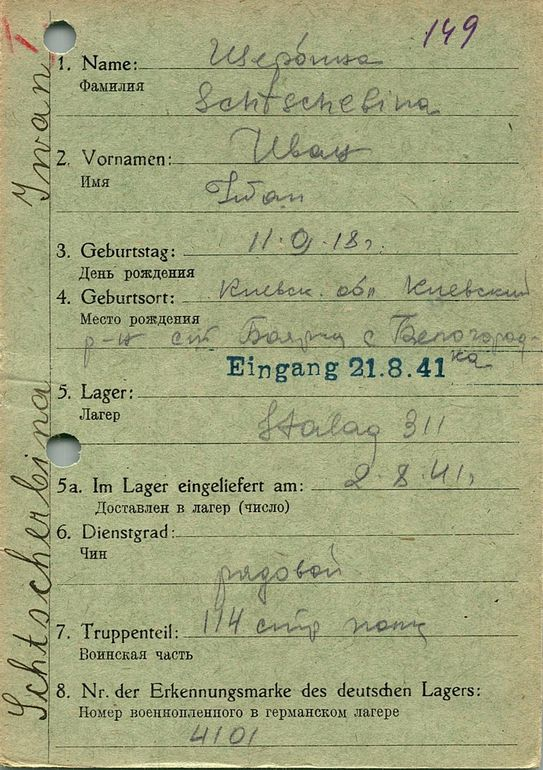 149
1. Name: Щербина
Фамилия
Schtschebina
2. Vornamen: Иван
Имя
Iwan
3. Geburtstag: 11.9.18г.
День рождения
4. Geburtsort: Киевск. обл Киевский
Место рождения
р-н ст Боярка с Белогород-
ка
Eingang 21.8.41
5. Lager:
Лагер
Stalag 311
5a. Im Lager eingeliefert am: 2.8.41г.
Доставлен в лагер (число)
6. Dienstgrad:
Чин
рядовой
7. Truppenteil: 114 стр полк
Воинская часть
8. Nr. der Erkennungsmarke des deutschen Lagers:
Номер военнопленного в германском лагере
4101
Schtscherbina Iwan